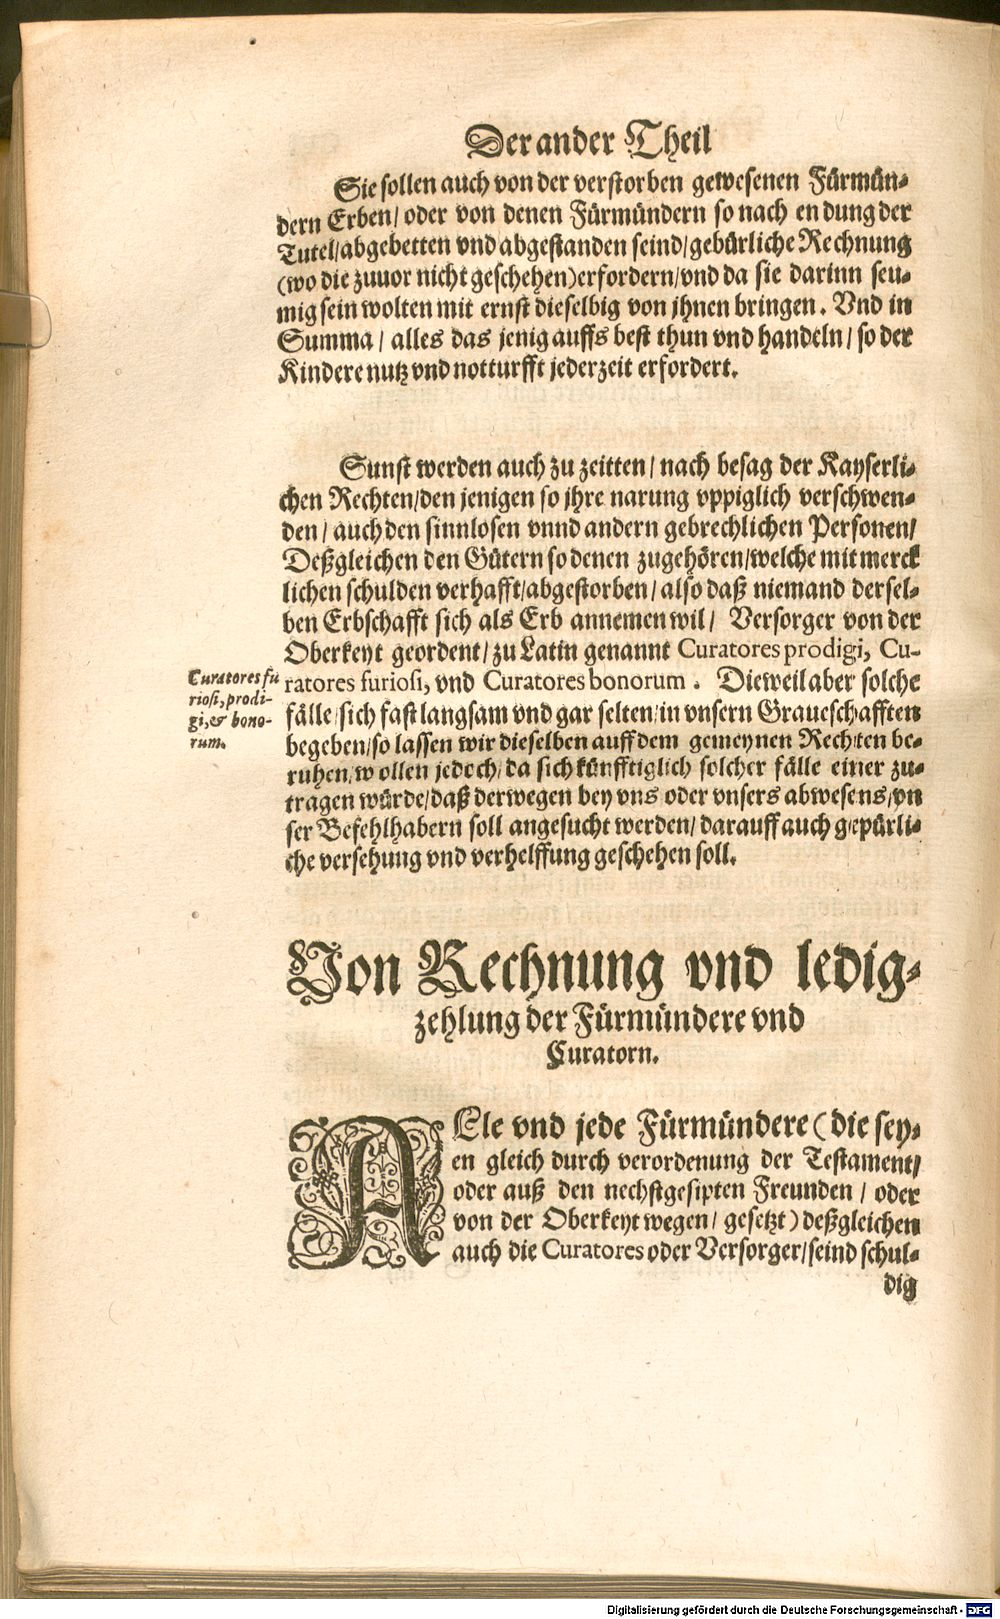 Der ander Theil
Sie sollen auch von der verstorben gewesenen Fürmün-
dern Erben/ oder von denen Fürmündern so nach endung der
Tutel/abgebetten vnd abgestanden seind/gebürliche Rechnung
(wo die zuuor nicht geschehen)erfordern/vnd da sie darinn seu-
mig sein wolten mit ernst dieselbig von jhnen bringen. Vnd in
Summa / alles das jenig auffs best thun vnd handeln / so der
Kindere nutz vnd notturfft jederzeit erfordert.
Sunst werden auch zu zeitten / nach besag der Kayserli-
chen Rechten/den jenigen so jhre narung vppiglich verschwen-
den / auch den sinnlosen vnnd andern gebrechlichen Personen/
Deßgleichen den Gütern so denen zugehören/welche mit merck
lichen schulden verhafft/abgestorben / also daß niemand dersel-
ben Erbschafft sich als Erb annemen wil/ Versorger von der
Oberkeyt geordent/ zu Latin genannt Curatores prodigi, Cu-
ratores furiosi, vnd Curatores bonorum . Dieweil aber solche
fälle/sich fast langsam vnd gar selten/in vnsern Graueschafften
begeben/so lassen wir dieselben auff dem gemeynen Rechten be-
ruhen/wollen jedoch/da sich künfftiglich solcher fälle einer zu-
tragen würde/daß derwegen bey vns oder vnsers abwesens/vn
ser Befehlhabern soll angesucht werden/ darauff auch gepürli-
che versehung vnd verhelffung geschehen soll.
Curatores fu
riosi, prodi-
gi, & bono-
rum.
Von Rechnung vnd ledig-
zehlung der Fürmündere vnd
Curatorn.
ALle vnd jede Fürmündere (die sey-
en gleich durch verordenung der Testament/
oder auß den nechstgesipten Freunden / oder
von der Oberkeyt wegen/ gesetzt) deßgleichen
auch die Curatores oder Versorger/seind schul-
dig
Digitalisierung gefördert durch die Deutsche Forschungsgemeinschaft - DFG